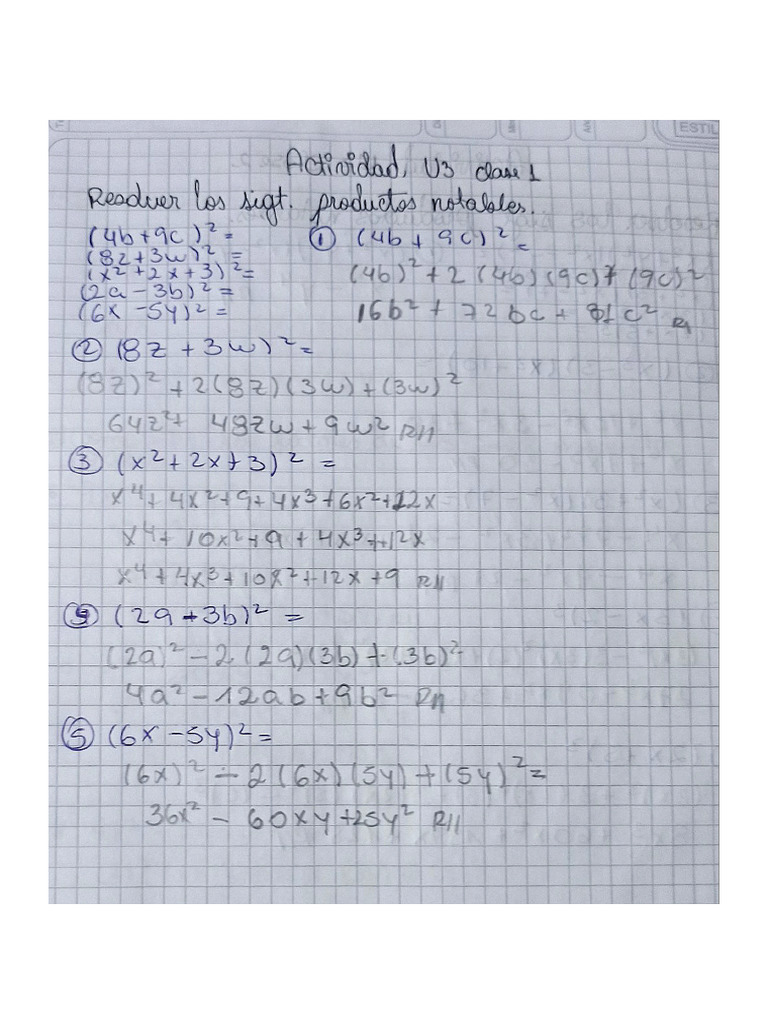 ESTIL
Actividad, U3 clase 1
Resolver los sigt. productos notables.
(4b+9c)²=
(8z+3w)²=
(x²+2x+3)²=
(2a-3b)²=
(6x-5y)²=
① (4b+9c)²=
(4b)²+2(4b)(9c)+(9c)²
16b²+72bc+81c² R//
② (8z+3w)²=
(8z)²+2(8z)(3w)+(3w)²
64z²+48zw+9w² R//
③ (x²+2x+3)²=
x⁴+4x²+9+4x³+6x²+12x
x⁴+10x²+9+4x³+12x
x⁴+4x³+10x²+12x+9 R//
④ (2a-3b)²=
(2a)²-2(2a)(3b)+(3b)²
4a²-12ab+9b² R//
⑤ (6x-5y)²=
(6x)²-2(6x)(5y)+(5y)²=
36x²-60xy+25y² R//